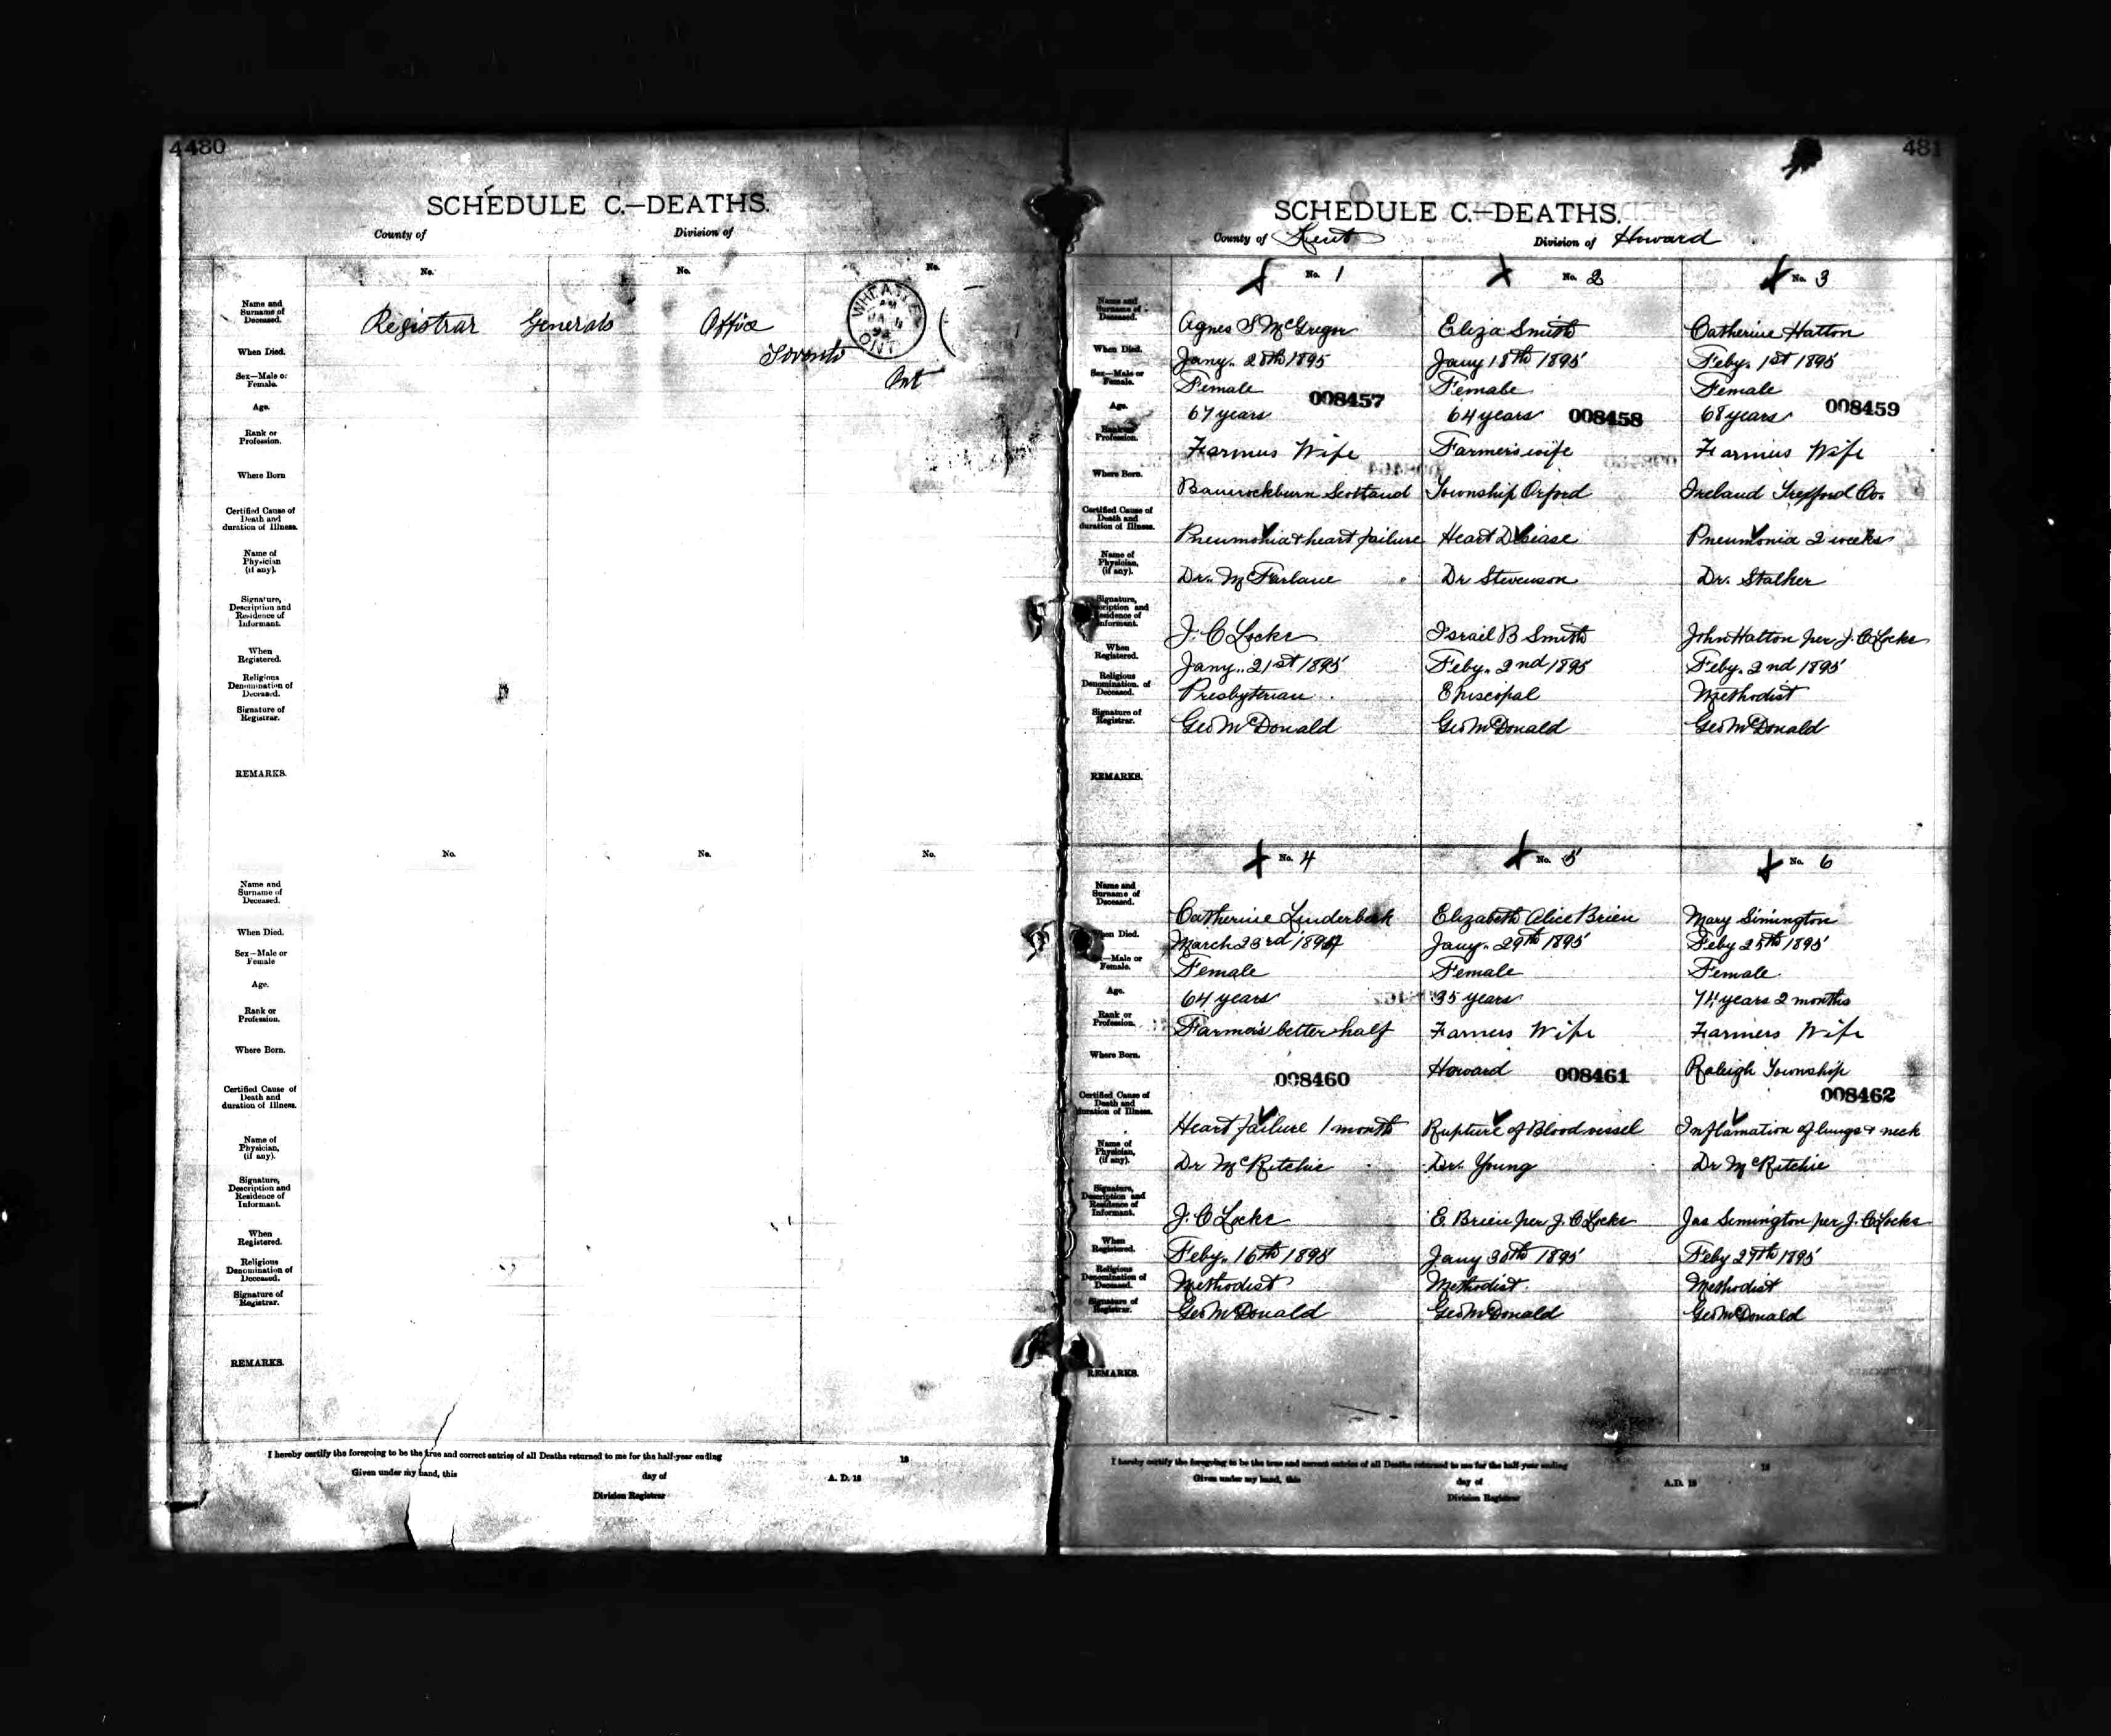 4480
SCHEDULE C.—DEATHS.
County of Division of
No. No. No.
Name and Surname of Deceased. Registrar Generals Office
Toronto
Ont
WHEATLEY
ONT
When Died.
Sex—Male or Female.
Age.
Rank or Profession.
Where Born
Certified Cause of Death and duration of Illness.
Name of Physician (if any).
Signature, Description and Residence of Informant.
When Registered.
Religious Denomination of Deceased.
Signature of Registrar.
REMARKS.
No. No. No.
Name and Surname of Deceased.
When Died.
Sex—Male or Female
Age.
Rank or Profession.
Where Born.
Certified Cause of Death and duration of Illness.
Name of Physician, (if any).
Signature, Description and Residence of Informant.
When Registered.
Religious Denomination of Deceased.
Signature of Registrar.
REMARKS.
I hereby certify the foregoing to be the true and correct entries of all Deaths returned to me for the half-year ending 18
Given under my hand, this day of A. D. 18
Division Registrar
481
SCHEDULE C.—DEATHS.
County of Kent Division of Howard
No. 1 No. 2 No. 3
Name and Surname of Deceased. Agnes S McGregor Eliza Smith Catherine Hatton
When Died. Jany. 28th 1895 Jany 18th 1895 Feby. 1st 1895
Sex—Male or Female. Female Female Female
008457 008458 008459
Age. 67 years 64 years 68 years
Rank or Profession. Farmers Wife Farmers wife Farmers Wife
Where Born. Bannockburn Scotland Township Orford Ireland Co.
Certified Cause of Death and duration of Illness. Pneumonia & heart failure Heart Disease Pneumonia 2 weeks
Name of Physician, (if any). Dr. McFarlane Dr Stevenson Dr. Stalker
Signature, Description and Residence of Informant. J. C Locke Israil B Smith John Hatton per J. C Locke
When Registered. Jany. 21st 1895 Feby. 2nd 1895 Feby. 2nd 1895
Religious Denomination of Deceased. Presbyterian Episcopal Methodist
Signature of Registrar. Geo McDonald Geo McDonald Geo McDonald
REMARKS.
No. 4 No. 5 No. 6
Name and Surname of Deceased. Catherine Linderbeck Elizabeth Alice Brien Mary Simington
When Died. March 23rd 1894 Jany. 29th 1895 Feby 25th 1895
Sex—Male or Female. Female Female Female
Age. 64 years 35 years 74 years 2 months
Rank or Profession. Farmers better half Farmers Wife Farmers Wife
Where Born. Howard Raleigh Township
008460 008461 008462
Certified Cause of Death and duration of Illness. Heart failure 1 month Rupture of Blood vessel Inflamation of lungs & neck
Name of Physician, (if any). Dr McRitchie Dr. Young Dr McRitchie
Signature, Description and Residence of Informant. J. C Locke E. Brien per J. C Locke Jas Simington per J. C Locke
When Registered. Feby. 16th 1895 Jany 30th 1895 Feby 27th 1895
Religious Denomination of Deceased. Methodist Methodist Methodist
Signature of Registrar. Geo McDonald Geo McDonald Geo McDonald
REMARKS.
I hereby certify the foregoing to be the true and correct entries of all Deaths returned to me for the half-year ending 18
Given under my hand, this day of A.D. 18
Division Registrar